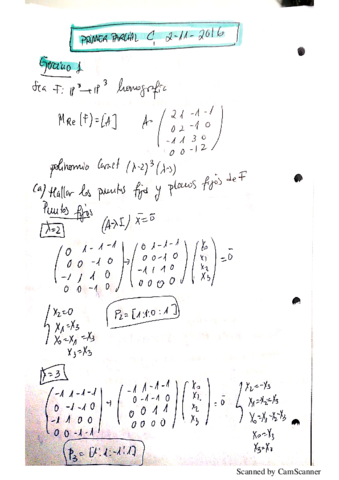 PRIMER PARCIAL C, 2-11-2016
Ejercicio 1
Sea F: P³→P³ homografía
M Re (F) = [A] A = ( 2 1 -1 -1
0 2 -1 0
-1 1 3 0
0 0 -1 2 )
polinomio caract (λ-2)³(λ-3)
(a) Hallar los puntos fijos y planos fijos de F
Puntos fijos (A-λI) x̄ = 0̄
λ=2
( 0 1 -1 -1 ) → ( 0 1 -1 -1 ) ( x₀ )
( 0 0 -1 0 ) ( 0 0 -1 0 ) ( x₁ ) = 0̄
( -1 1 1 0 ) ( -1 1 1 0 ) ( x₂ )
( 0 0 -1 0 ) ( 0 0 0 0 ) ( x₃ )
x₂=0
x₁=x₃
x₀=x₁=x₃
x₃=x₃
P₂=[1:1:0:1]
λ=3
( -1 1 -1 -1 ) → ( -1 1 -1 -1 ) ( x₀ ) x₂=-x₃
( 0 -1 -1 0 ) ( 0 -1 -1 0 ) ( x₁ ) = 0̄ x₁=-x₂=x₃
( -1 1 0 0 ) ( 0 0 1 1 ) ( x₂ ) x₀=x₁-x₂-x₃
( 0 0 -1 -1 ) ( 0 0 0 0 ) ( x₃ ) x₀=x₃
x₃=x₃
P₃=[1:1:-1:1]
Scanned by CamScanner